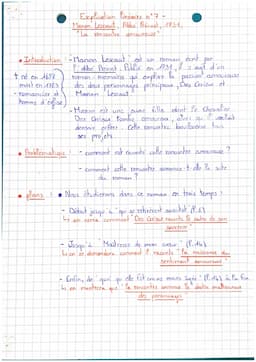 Explication linéaire n°7
Manon Lescaut, Abbé Prévost, 1731,
"La rencontre amoureuse"
• Introduction : - "Manon Lescaut" est un roman écrit par
l'abbé Prévost. Publié en 1731, il s'agit d'un
né en 1697
roman-mémoires qui explore la passion amoureuse
mort en 1763
des deux personnages principaux, Des Grieux et
romancier et
Manon Lescaut.
homme d'église
- Manon est une jeune fille dont le Chevalier
Des Grieux tombe amoureux, alors qu'il
Cette rencontre bouleverse tous
ses projets.
• Problématique : - comment est racontée cette rencontre amoureuse ?
- comment cette rencontre annonce-t-elle la suite
du roman ?
• plan : • Nous étudierons dans ce roman en trois temps :
- Début jusqu'à " qui se retirèrent aussitôt"
↳ on verra comment "Des Grieux raconte le cadre de son
- Jusqu'à "Maîtresse de mon cœur"
↳ on se demandera comment il raconte "la naissance du
sentiment amoureux"
- Enfin, de à la fin
↳ on montrera que "la rencontre annonce le destin malheureux
des personnages